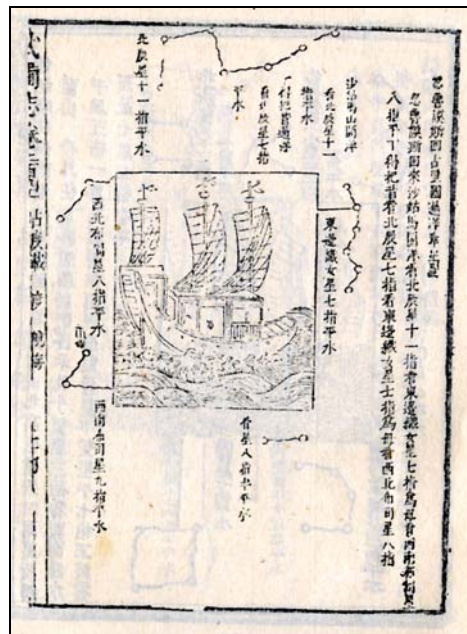 忽魯謨斯回古里國過洋牽星圖
忽魯謨斯回來沙姑馬開洋看北辰星十一指看東邊織女星七指為母看西南布司星
八指平丁得把昔看北辰星七指看東邊織女星七指為母看西北布司星八指
沙姑馬山開洋
看北辰星十一
指平水
丁得把昔過洋
看北辰星七指
平水
北辰星十一指平水
東邊織女星七指平水
西北布司星八指平水
西南布司星九指平水
看星八指半平水
武備志卷二百四十